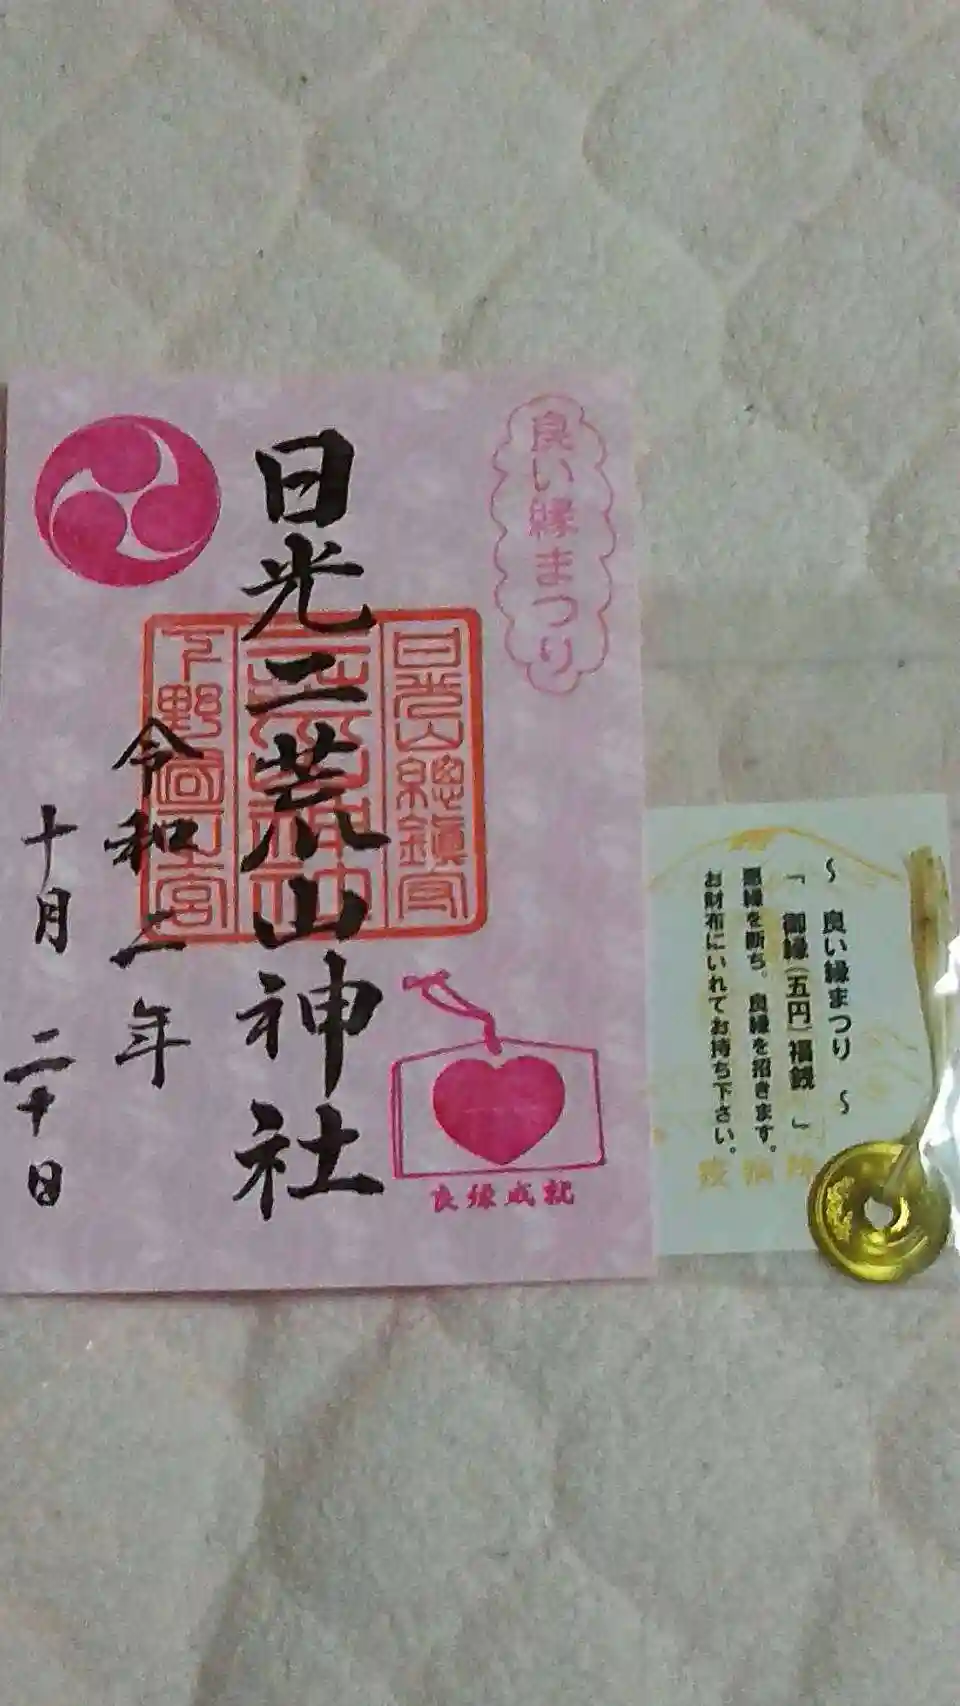 良い縁まつり
日光二荒山神社
日光山總鎮守
下野國一宮
令和二年
十月二十日
良縁成就
～ 良い縁まつり ～
「 御縁(五円)福銭 」
悪縁を断ち、良縁を招きます。
お財布にいれてお持ち下さい。